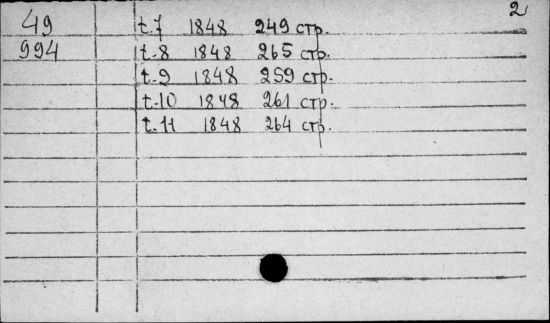 2
49 t.7 1848 249 стр.
994 t.8 1848 265 стр.
t.9 1848 259 стр.
t.10 1848 261 стр.
t.11 1848 264 стр.